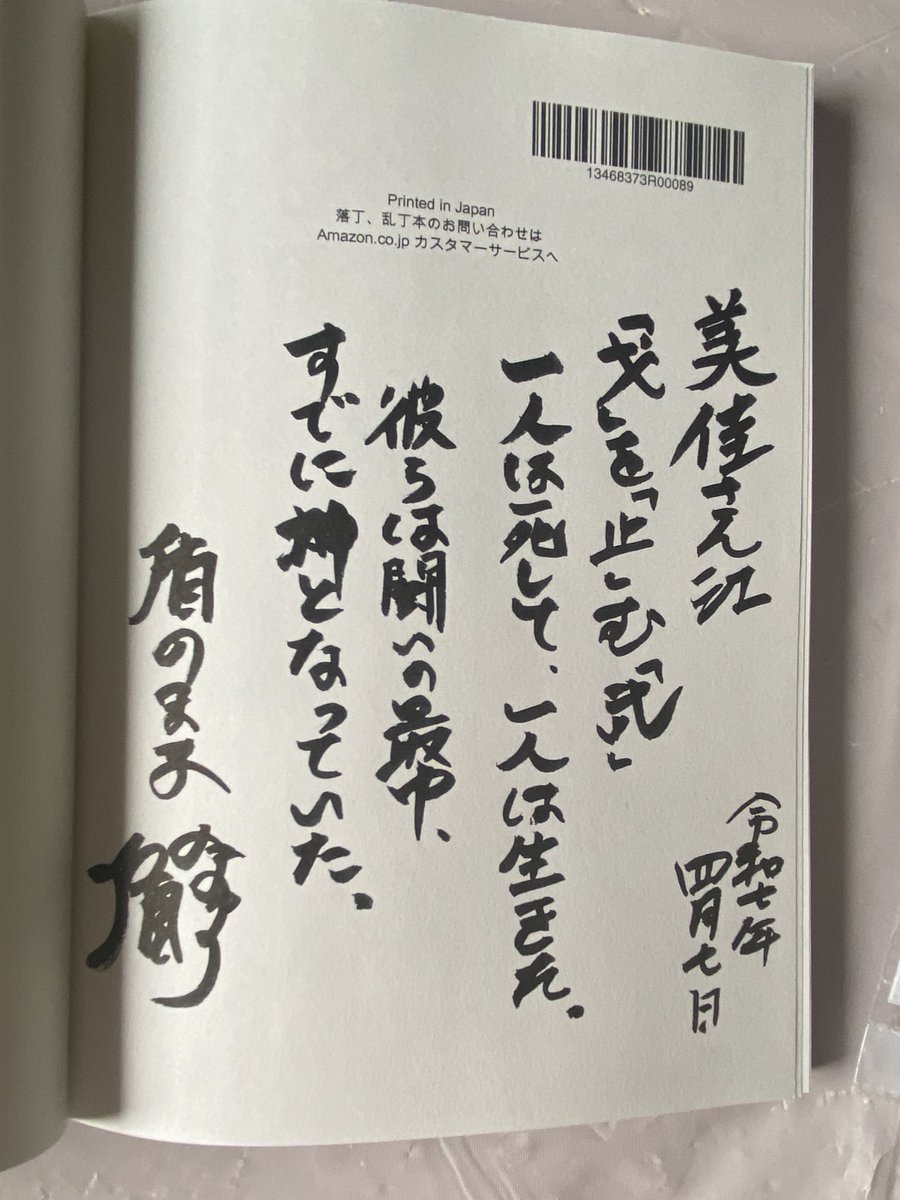 13468373R00089
Printed in Japan
落丁、乱丁本のお問い合わせは
Amazon.co.jp カスタマーサービスへ
美佳さん江
「戈」を「止」む「武」
一人は死して、一人は生きた。
彼らは闘いの最中、
すでに神となっていた。
盾のまる
令和七年
四月七日